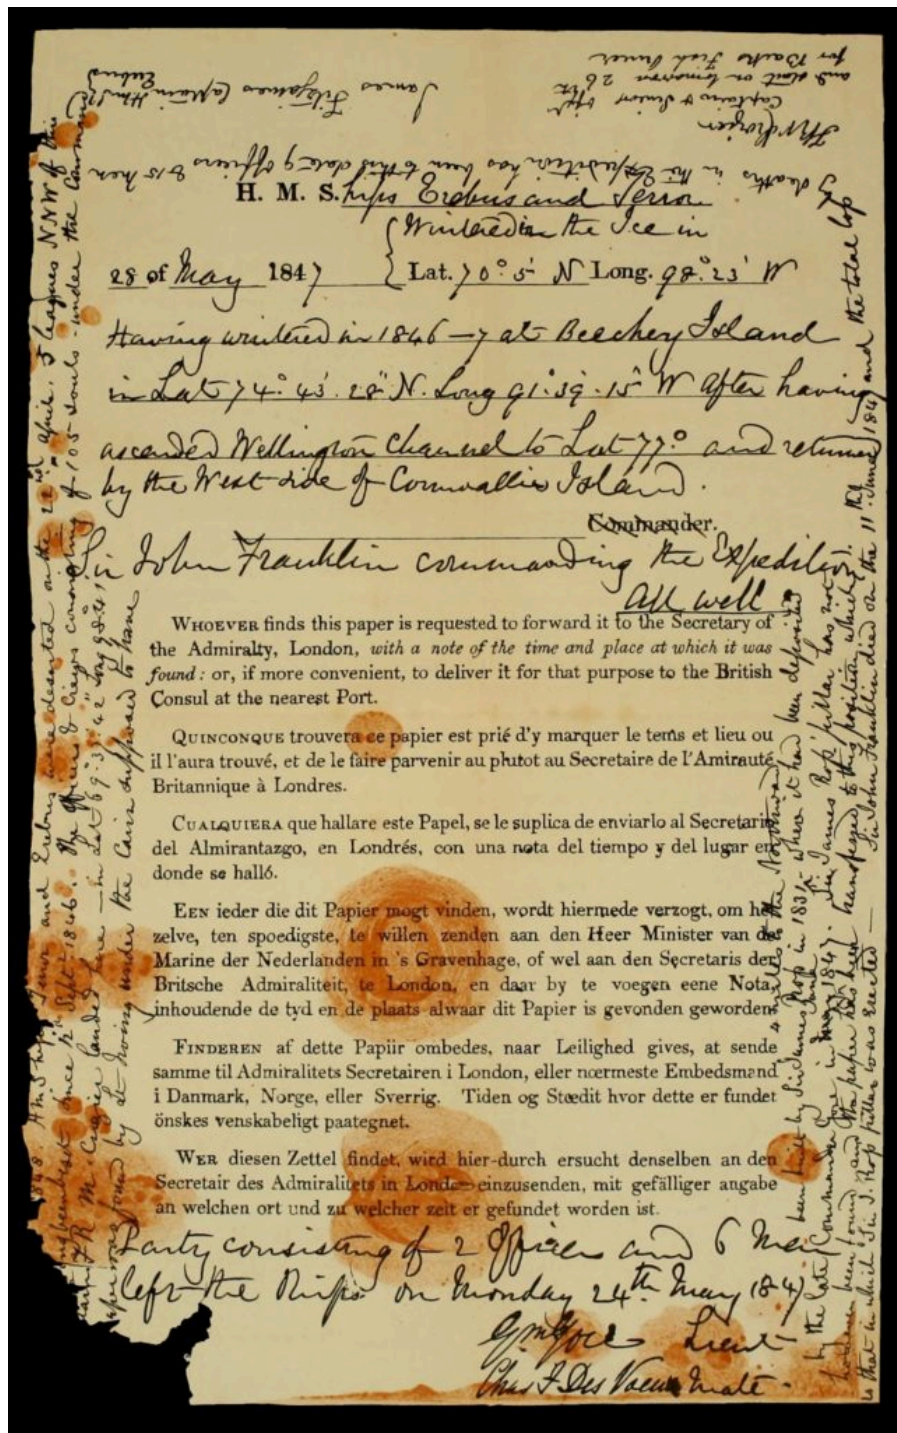 H. M. S. hips Erebus and Terror
Wintered in the Ice in
28 of May 1847 Lat. 70° 5' N Long. 98° 23' W
Having wintered in 1846–7 at Beechey Island
in Lat 74° 43' 28" N. Long 91° 39' 15" W After having
ascended Wellington Channel to Lat 77° and returned
by the West side of Cornwallis Island.
Commander.
Sir John Franklin commanding the Expedition
All well
WHOEVER finds this paper is requested to forward it to the Secretary of
the Admiralty, London, with a note of the time and place at which it was
found: or, if more convenient, to deliver it for that purpose to the British
Consul at the nearest Port.
QUINCONQUE trouvera ce papier est prié d'y marquer le tems et lieu ou
il l'aura trouvé, et de le faire parvenir au plutot au Secretaire de l'Amirauté
Britannique à Londres.
CUALQUIERA que hallare este Papel, se le suplica de enviarlo al Secretario
del Almirantazgo, en Londrés, con una nota del tiempo y del lugar en
donde se halló.
EEN ieder die dit Papier mogt vinden, wordt hiermede verzogt, om het
zelve, ten spoedigste, te willen zenden aan den Heer Minister van de
Marine der Nederlanden in 's Gravenhage, of wel aan den Secretaris der
Britsche Admiraliteit, te London, en daar by te voegen eene Nota,
inhoudende de tyd en de plaats alwaar dit Papier is gevonden geworden
FINDEREN af dette Papiir ombedes, naar Leilighed gives, at sende
samme til Admiralitets Secretairen i London, eller nœrmeste Embedsmand
i Danmark, Norge, eller Sverrig. Tiden og Stœdit hvor dette er fundet
önskes venskabeligt paategnet.
WER diesen Zettel findet, wird hier-durch ersucht denselben an den
Secretair des Admiralitets in London einzusenden, mit gefälliger angabe
an welchen ort und zu welcher zeit er gefundet worden ist.
Party consisting of 2 Officers and 6 Men
left the Ships on Monday 24th May 1847
Gm Gore Lieut
Chas F Des Voeux Mate
1848 HM Ships Terror and Erebus were deserted on the 22nd April 5 leagues NNW of this
having been beset since 12th Sept 1846. The Officers & Crews consisting of 105 souls under the Command
Captain F R M Crozier landed here in Lat 69° 37' 42" Long 98° 41'
paper was found by Lt Irving under the Cairn supposed to have
been built by Sir James Ross in 1831 where it had been deposited
4 miles to the Northward
by the late Commander Gore in May 1847. Sir James Ross' pillar has not
however been found and the paper has been transferred to this position which
is that in which Sir J. Ross pillar was erected — Sir John Franklin died on the 11th June 1847 and the total loss
by deaths in the Expedition has been to this date 9 Officers & 15 Men
James Fitzjames Captain HMS Erebus
F R M Crozier
Captain & Senior Offr
and start on tomorrow 26th
for Backs Fish River